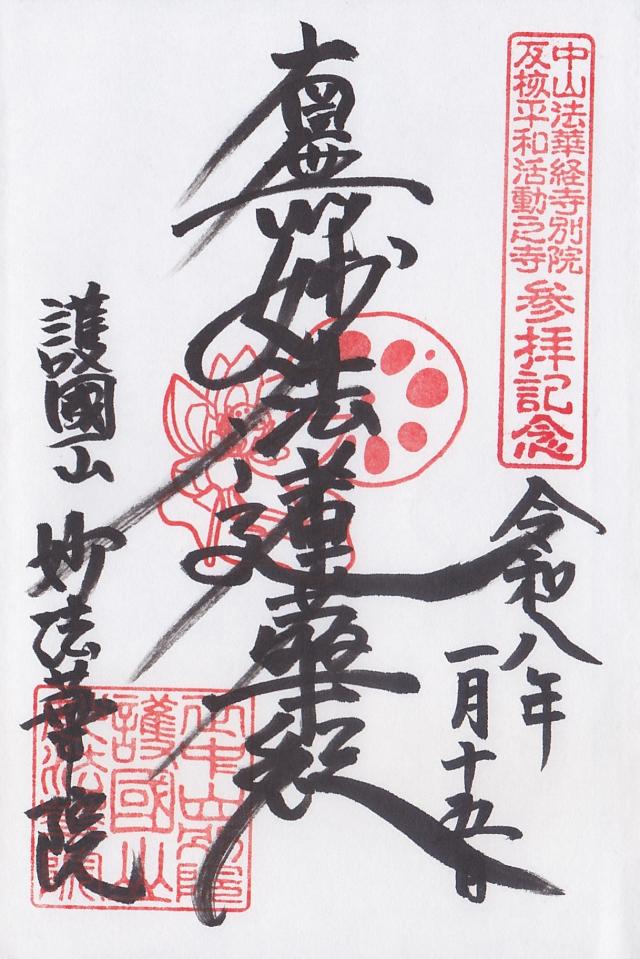 中山法華経寺別院
反核平和活動之寺
参拝記念
令和八年
一月十五日
南無妙法蓮華経
護國山 妙法華院
護國山